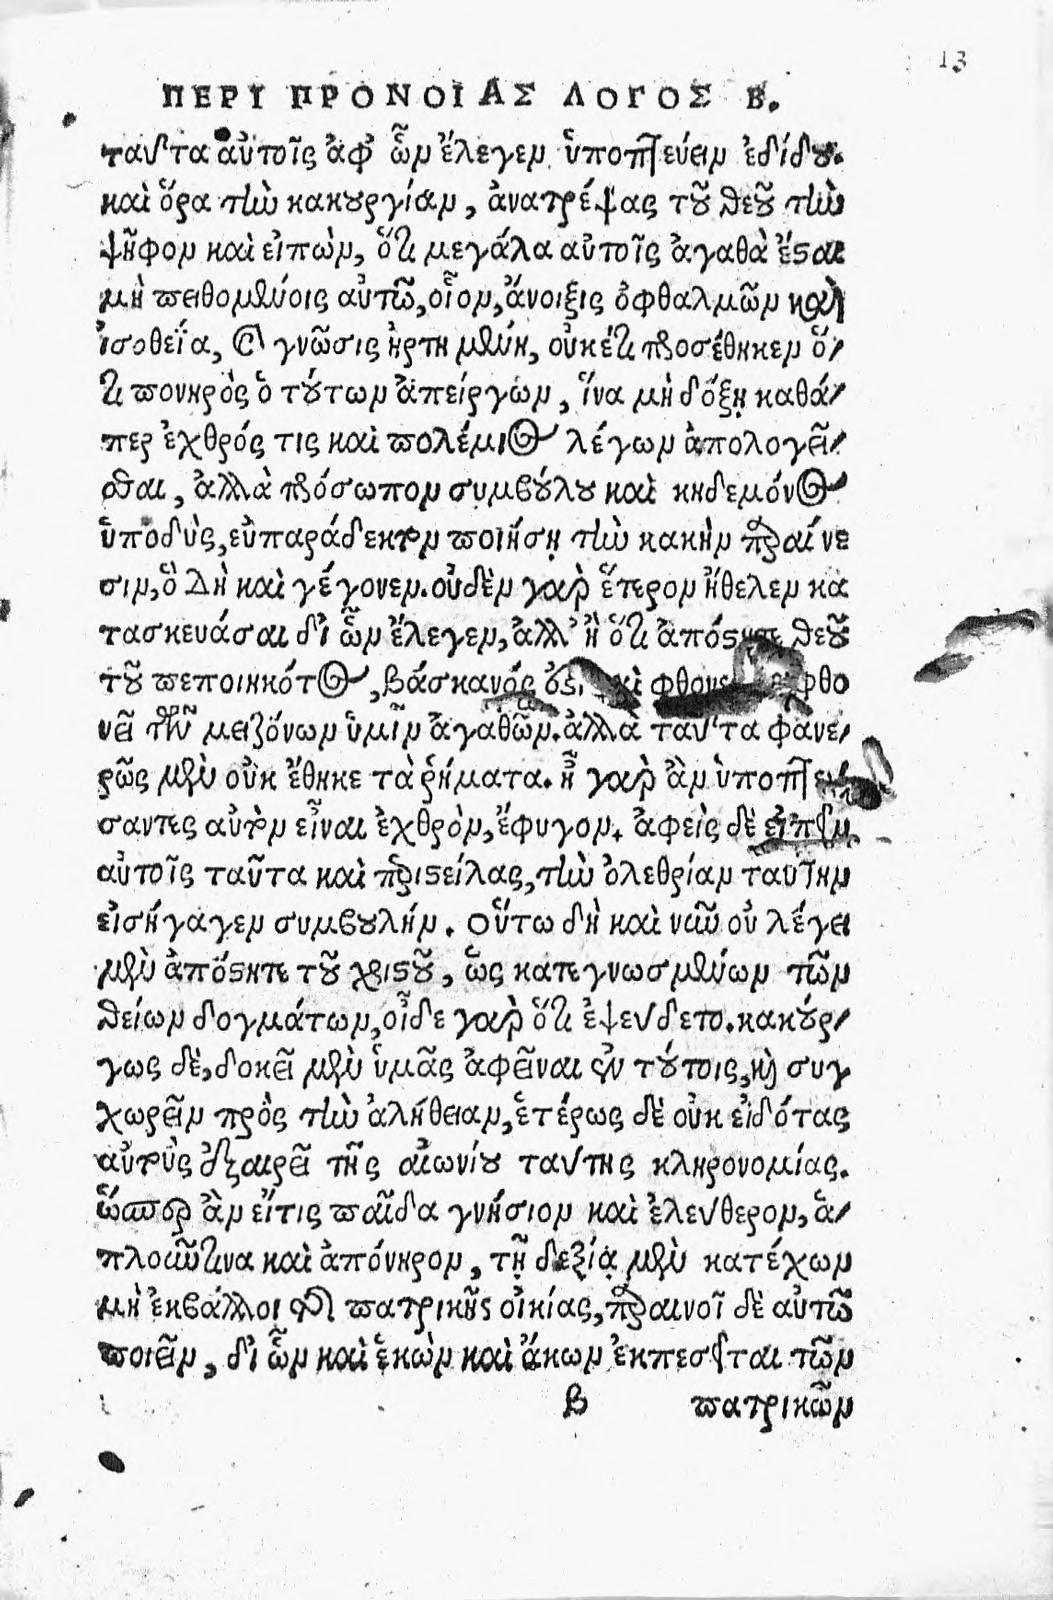 13
ΠΕΡΙ ΠΡΟΝΟΙΑΣ ΛΟΓΟΣ Β.
ταῦτα αὐτοῖς ἀφ' ὧν ἔλεγεν ὑποπτεύειν ἐδίδου.
καὶ ὅρα τὴν κακουργίαν, ἀνατρέψας τοῦ θεοῦ τὴν
ψῆφον καὶ εἰπὼν, ὅτι μεγάλα αὐτοῖς ἀγαθὰ ἔσται
μὴ πειθομένοις αὐτῷ, οἷον, ἄνοιξις ὀφθαλμῶν καὶ
ἰσοθεΐα, καὶ γνῶσις ἠρτημένη, οὐκέτι προσέθηκεν ὅ-
τι πονηρὸς ὁ τούτων ἀπείργων, ἵνα μὴ δόξῃ καθά-
περ ἐχθρός τις καὶ πολέμιος λέγων ἀπολογεῖ-
σθαι, ἀλλὰ πρόσωπον συμβούλου καὶ κηδεμόνος
ὑποδὺς, εὐπαράδεκτον ποιήσῃ τὴν κακὴν παραίνε
σιν, ὃ δὴ καὶ γέγονεν. οὐδὲν γὰρ ἕτερον ἤθελεν κα
τασκευάσαι δι' ὧν ἔλεγεν, ἀλλ' ἢ ὅτι ἀπόστητε θεοῦ
τοῦ πεποιηκότος, βάσκανός καὶ φθο
νεῖ τῶν μειζόνων ὑμῖν ἀγαθῶν. ἀλλὰ ταῦτα φανε-
ρῶς μὲν οὐκ ἔθηκε τὰ ῥήματα. ἦ γὰρ ἂν ὑποπτεύ-
σαντες αὐτὸν εἶναι ἐχθρὸν, ἔφυγον. ἀφεὶς δὲ εἰπεῖν
αὐτοῖς ταῦτα καὶ περιστείλας, τὴν ὀλεθρίαν ταύτην
εἰσήγαγεν συμβουλήν. οὕτω δὴ καὶ νῦν οὐ λέγει
μὲν ἀπόστητε τοῦ χριστοῦ, ὡς κατεγνωσμένων τῶν
θείων δογμάτων, οἶδε γὰρ ὅτι ἐψεύδετο. κακούρ-
γως δὲ, δοκεῖ μὲν ὑμᾶς ἀφεῖναι ἐν τούτοις, καὶ συγ
χωρεῖν πρὸς τὴν ἀλήθειαν, ἑτέρως δὲ οὐκ εἰδότας
αὐτοὺς ἐξαιρεῖ τῆς αἰωνίου ταύτης κληρονομίας.
ὥσπερ ἂν εἴτις παῖδα γνήσιον καὶ ἐλεύθερον, ἁ-
πλοῦντινα καὶ ἀπόνηρον, τῇ δεξιᾷ μὲν κατέχων
μὴ ἐκβάλλοι τῆς πατρικῆς οἰκίας, παραινοῖ δὲ αὐτῷ
ποιεῖν, δι' ὧν καὶ ἑκὼν καὶ ἄκων ἐκπεσεῖται τῶν
Β πατρικῶν